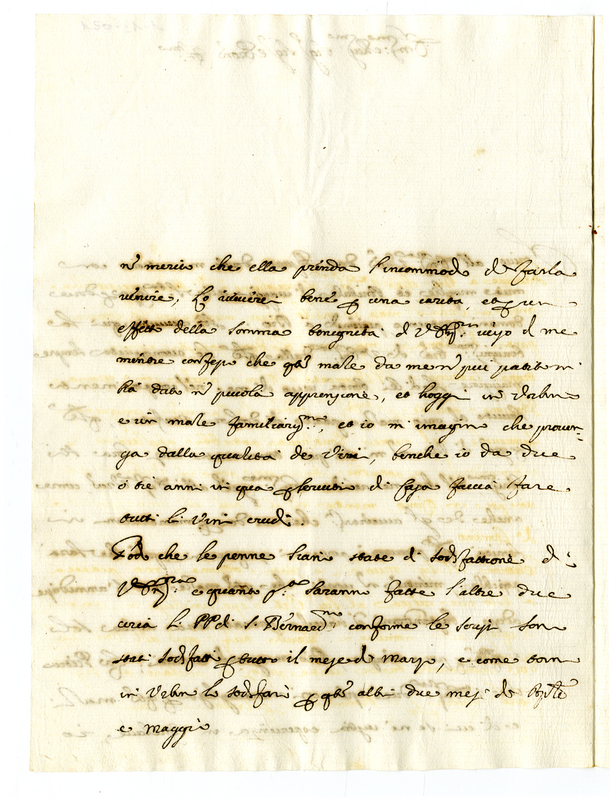 n merita che ella prenda l'incommodo di farla
venire, Lo riceverei bene p una carita, et p un
effetto della somma benignità di V.S. verso di me
mentre confesso che qto male da me n piu patito m
ha dato n piccola apprensione, et hoggi in Urbino
e un male familiariss.mo, et io m imagino che proven=
ga dalla qualità de Vini, benche io da due
o tre anni in qua p servitio di Casa faccia fare
tutti li Vini crudi.
Godo che le penne siano state di sodisfattione di
V.S. e quanto p.a saranno fatte l'altre due
circa li PP di S. Bernardno conforme le scrissi sono
stati sodisfatti p tutto il mese di Marzo, e come torno
in Urbino lo sodisfarò p qti altri due mesi di Aprile
e Maggio